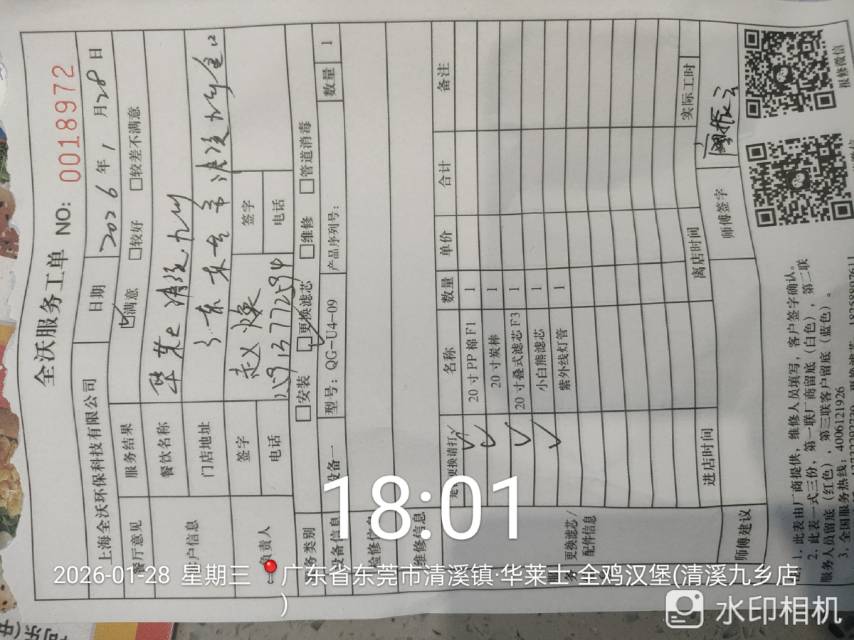 全沃服务工单 NO: 0018972
上海全沃环保科技有限公司 日期 2026年1月28日
餐厅意见 服务结果 ☑满意 □较好 □较差不满意
客户信息 餐饮名称 华莱士清溪九乡
门店地址 广东东莞市清溪九乡
负责人 签字 签字
电话 电话
服务类别 □安装 ☑更换滤芯 □维修 □管道消毒
设备信息 设备一 型号: QG-U4-09 产品序列号: 数量 1
检修信息
维修信息
更换滤芯/配件信息 更换请打√ 名称 数量 单价 合计 备注
√ 20寸PP棉F1 1
√ 20寸炭棒 1
√ 20寸叠式滤芯F3 1
√ 小白熊滤芯 1
紫外线灯管 1
进店时间 离店时间 实际工时
师傅建议 师傅签字
报修微信
1. 此表由厂商提供,维修人员填写,客户签字确认。
2. 此表一式三份,第一联厂商留底(白色),第二联
服务人员留底(红色),第三联客户留底(蓝色)。
3. 全国服务热线: 4006121926
18:01
2026-01-28 星期三 广东省东莞市清溪镇·华莱士·全鸡汉堡(清溪九乡店
)
水印相机